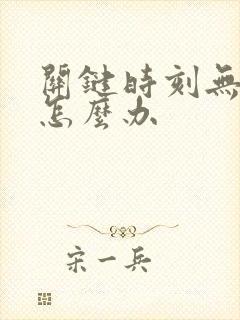 關鍵時刻無
怎麼办
宋一兵